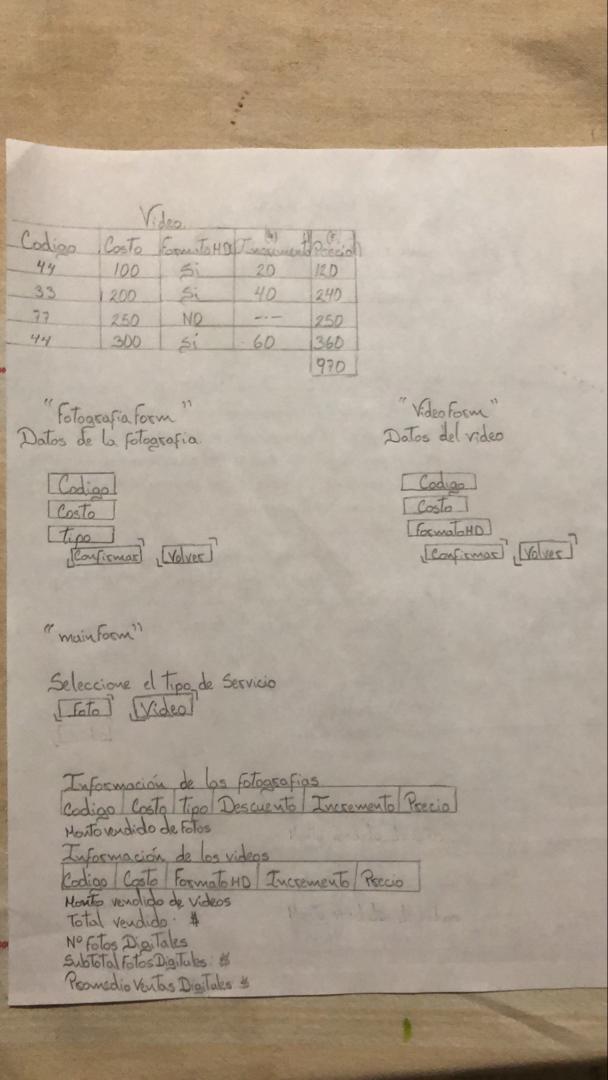 Video
Codigo Costo FormatoHD Incremento (+) Precio (=)
44 100 Si 20 120
33 200 Si 40 240
77 250 NO --- 250
44 300 Si 60 360
970
"Fotografia Form"
Datos de la fotografia.
Codigo
Costo
Tipo
Confirmar Volver
"Video Form"
Datos del video
Codigo
Costo
FormatoHD
Confirmar Volver
"main Form"
Seleccione el Tipo de Servicio
Foto Video
Información de las fotografias
Codigo Costo Tipo Descuento Incremento Precio
Monto vendido de Fotos
Información de los videos
Codigo Costo FormatoHD Incremento Precio
Monto vendido de Videos
Total vendido: $
Nº Fotos Digitales
SubTotal Fotos Digitales: $
Promedio Ventas Digitales $